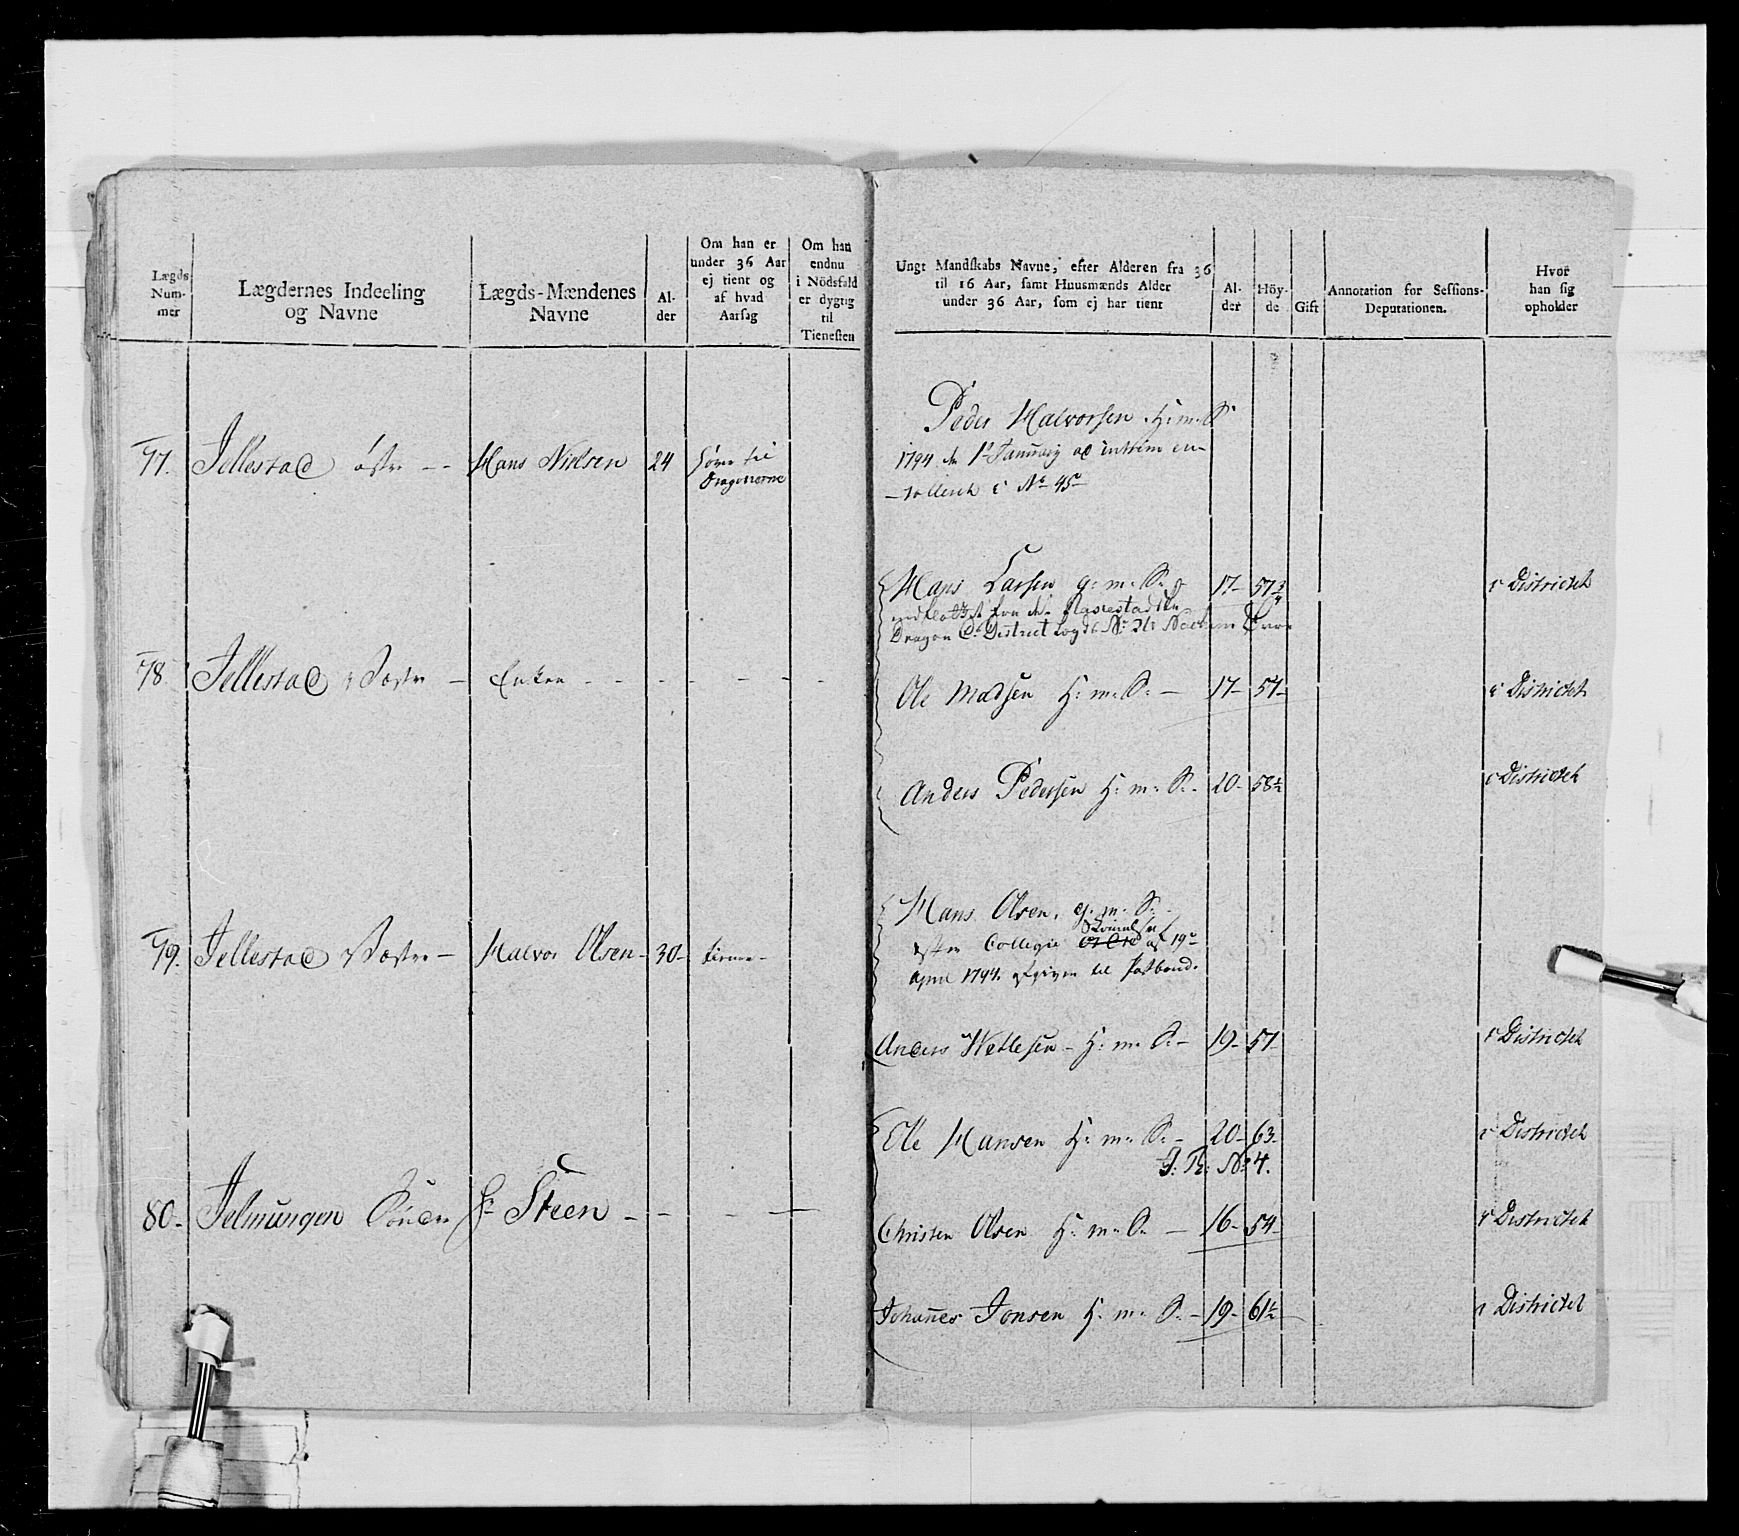 Lægds
Num-
mer
Lægdernes Indeeling
og Navne
Lægds-Mændenes
Navne
Al-
der
Om han er
under 36 Aar
ej tient og
af hvad
Aarsag
Om han
endnu
i Nödsfald
er dygtig
til
Tienesten
77.
Jellestad østre - -
Hans Nielsen
24
hører til
Dragonerne
78
Jellestad Væstre -
Enken - - - - -
79.
Jellestad Væstre -
Halvor Olsen -
30-
tiener -
80-
Jelmungen Søndre
Hr Steen - - - -
Ungt Mandskabs Navne, efter Alderen fra 36
til 16 Aar, samt Huusmænds Alder
under 36 Aar, som ej har tient
Al-
der
Höy-
de
Gift
Annotation for Sessions-
Deputationen.
Hvor
han sig
opholder
Peder Halvorsen H: m: S:
1794 den 1te January ad intrim en-
-rolleret i No 45
Hans Larsen g: m: S: 17- 57 3/4 i Districtet
indflottet fra det
Dragon C: District Lægd No
Ole Madsen H: m: S: - 17- 57- i Districtet
Anders Pedersen H: m: S: - 20- 58½ i Districtet
Hans Olsen. g. m. S: -
efter Collegie af 19de
April 1794 afgiven til
Anders Wetlesen - H: m: S: - 19- 57- i Districtet
Ole Hansen H: m: S: - 20- 63- i Districtet
No 4.
Christen Olsen H: m: S: - 16- 54- i Districtet
Johanes Jonsen H: m: S: - 19- 61½ i Districtet